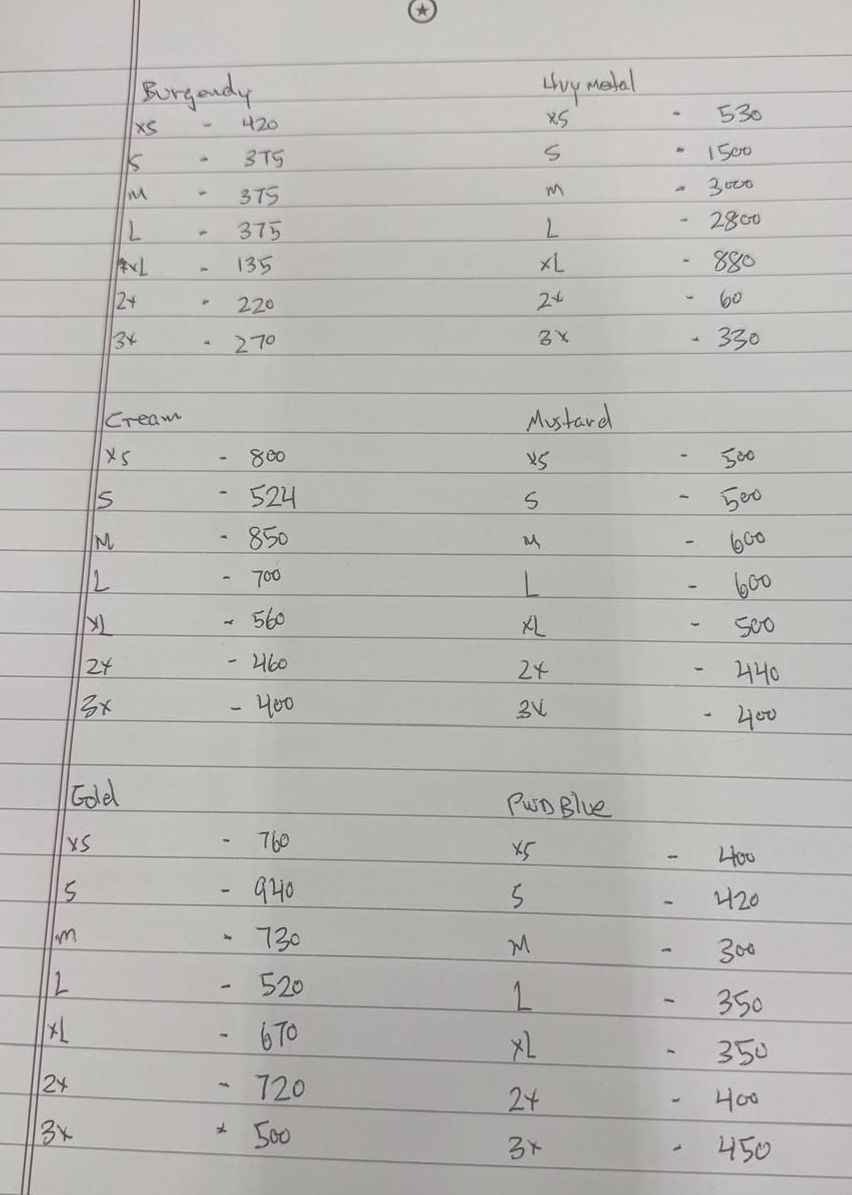 Burgendy Hvy metal
xs - 420 xs - 530
S - 375 S - 1500
M - 375 M - 3000
L - 375 L - 2800
XL - 135 XL - 880
2x - 220 2x - 60
3x - 270 3x - 330
Cream Mustard
XS - 800 XS - 500
S - 524 S - 500
M - 850 M - 600
L - 700 L - 600
XL - 560 XL - 500
2x - 460 2x - 440
3x - 400 3x - 400
Gold PWD Blue
XS - 760 XS - 400
S - 940 S - 420
M - 730 M - 300
L - 520 L - 350
XL - 670 XL - 350
2x - 720 2x - 400
3x - 500 3x - 450